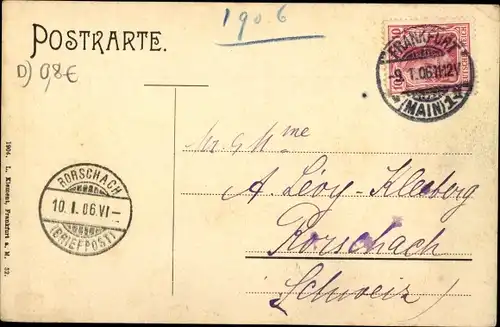 1906
POSTKARTE.
D) 98€
10
DEUTSCHES REICH
FRANKFURT
9.1.06.11-12V
(MAIN) 1
Mr. & Mme
A. Lévy-Kleeberg
Rorschach
Schweiz
RORSCHACH
10.I.06.VI-
(BRIEFPOST)
1904. L. Klement, Frankfurt a. M. 32.